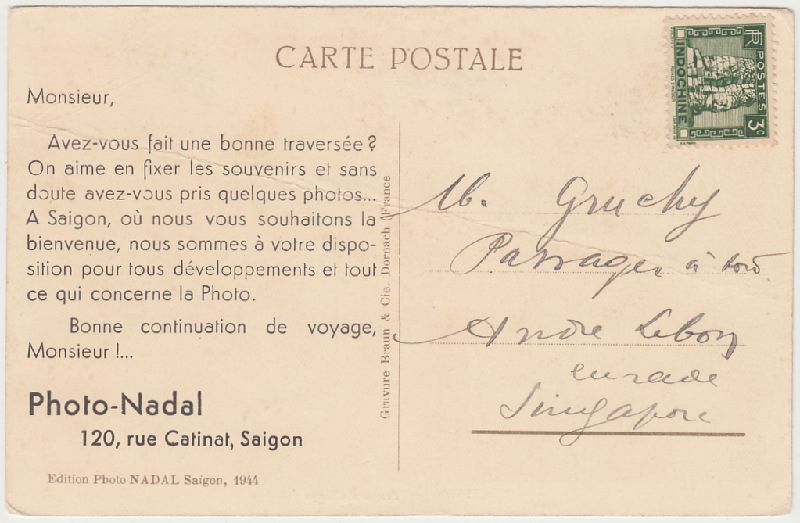 CARTE POSTALE
RF
POSTES
INDOCHINE
3c
Monsieur,
Avez-vous fait une bonne traversée ?
On aime en fixer les souvenirs et sans
doute avez-vous pris quelques photos...
A Saigon, où nous vous souhaitons la
bienvenue, nous sommes à votre dispo-
sition pour tous développements et tout
ce qui concerne la Photo.
Bonne continuation de voyage,
Monsieur !...
Photo-Nadal
120, rue Catinat, Saigon
Edition Photo NADAL Saïgon, 1944
Gravure Braun & Cie. Dornach (France
M. Gruchy
Passager à bord
André Lebon
en rade
Singapore